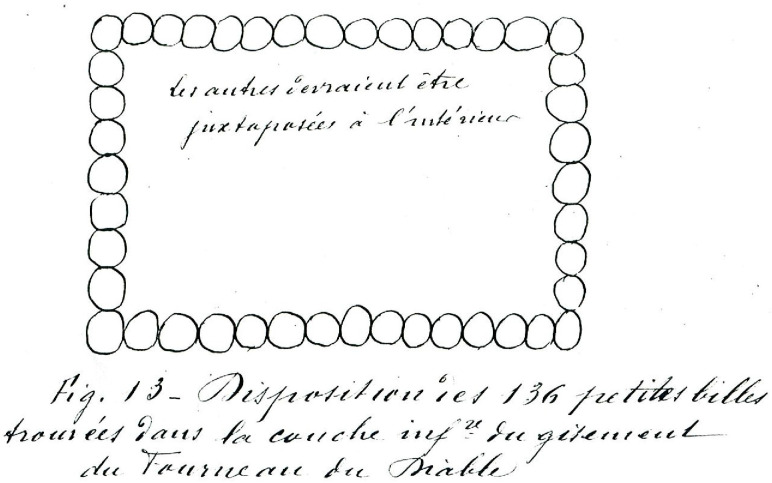 Les autres devraient être
juxtaposées à l'intérieur
Fig. 13 - Disposition des 136 petites billes
trouvées dans la couche inf^re du gisement
du Fourneau du Diable